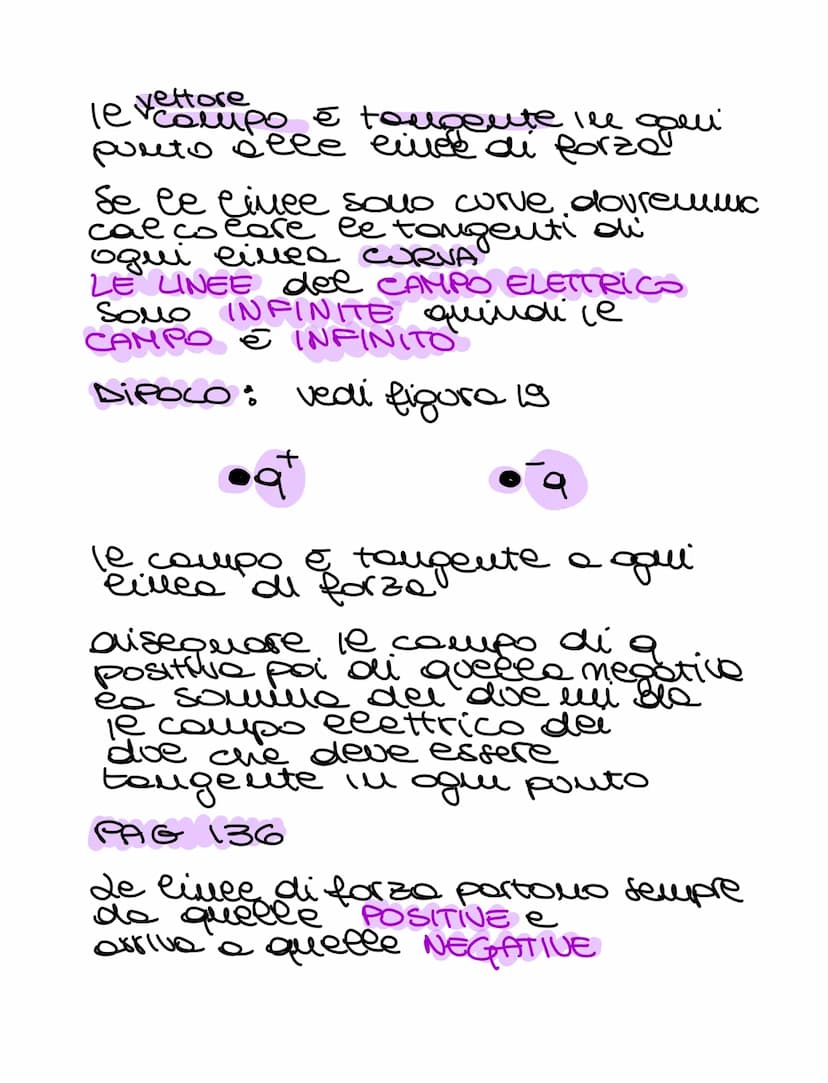 vettore
il campo è tangente in ogni
punto alle linee di forza
Se le linee sono curve dovremmo
calcolare le tangenti di
ogni linea CURVA
LE LINEE del CAMPO ELETTRICO
sono INFINITE quindi il
CAMPO è INFINITO
DIPOLO: vedi figura 19
q+ -q
il campo è tangente a ogni
linea di forza
disegnare il campo di q
positiva poi di quella negativa
la somma dei due mi dà
il campo elettrico dei
due che deve essere
tangente in ogni punto
PAG 136
Le linee di forza partono sempre
da quelle POSITIVE e
arriva a quelle NEGATIVE